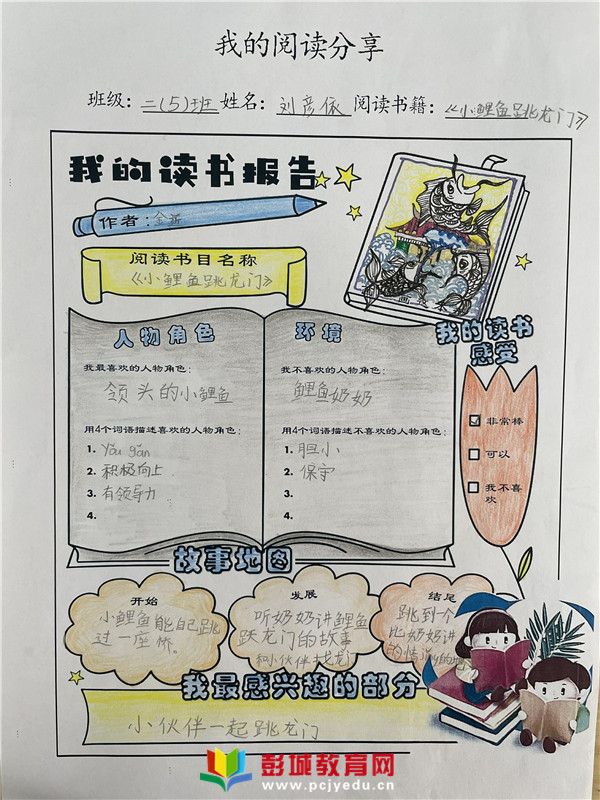 我的阅读分享
班级：二(5)班 姓名：刘彦依 阅读书籍：《小鲤鱼跳龙门》
我的读书报告
作者：金近
阅读书目名称
《小鲤鱼跳龙门》
人物角色
我最喜欢的人物角色：
领头的小鲤鱼
用4个词语描述喜欢的人物角色：
1. Yǒu gǎn
2. 积极向上
3. 有领导力
4.
环境
我不喜欢的人物角色：
鲤鱼奶奶
用4个词语描述不喜欢的人物角色：
1. 胆小
2. 保守
3.
4.
我的读书
感受
非常棒
可以
我不喜
欢
故事地图
开始
小鲤鱼能自己跳
过一座桥。
发展
听奶奶讲鲤鱼
跃龙门的故事
和小伙伴找龙门
结尾
跳到一个
比奶奶讲
的情
我最感兴趣的部分
小伙伴一起跳龙门
彭城教育网
www.pcjyedu.cn